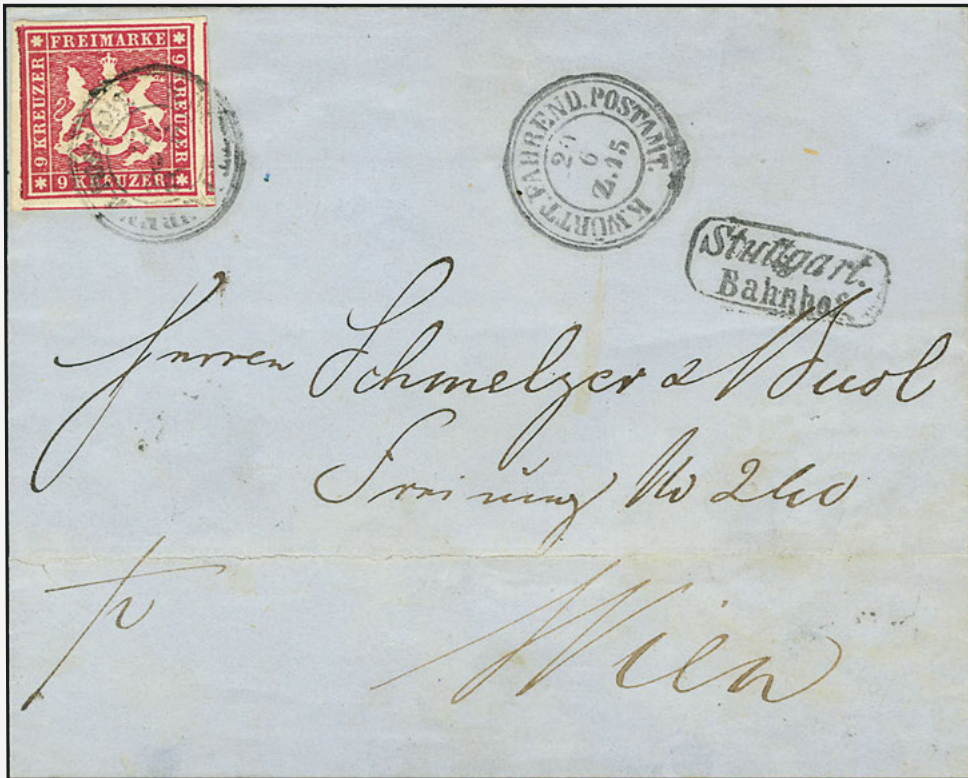 FREIMARKE
9 KREUZER
9 KREUZER
9 KREUZER
K.WÜRTT.FAHREND.POSTAMT.
6
Z.15
Stuttgart.
Bahnhof
Herren Schmelzer &
No 260
Wien